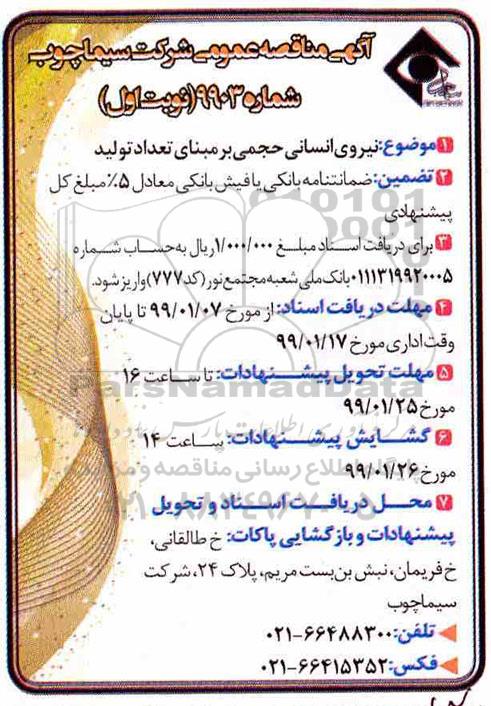 آگهی مناقصه عمومی شرکت سیماچوب
شماره ۹۹۰۳ (نوبت اول)
۱ موضوع: نیروی انسانی حجمی بر مبنای تعداد تولید
۲ تضمین: ضمانتنامه بانکی یا فیش بانکی معادل ۵٪ مبلغ کل
پیشنهادی
۳ برای دریافت اسناد مبلغ ۱/۰۰۰/۰۰۰ ریال به حساب شماره
۰۱۱۱۳۱۹۹۲۰۰۰۵ بانک ملی شعبه مجتمع نور (کد ۷۷۷) واریز شود.
۴ مهلت دریافت اسناد: از مورخ ۹۹/۰۱/۰۷ تا پایان
وقت اداری مورخ ۹۹/۰۱/۱۷
۵ مهلت تحویل پیشنهادات: تا ساعت ۱۶
مورخ ۹۹/۰۱/۲۵
۶ گشایش پیشنهادات: ساعت ۱۴
مورخ ۹۹/۰۱/۲۶
۷ محل دریافت اسناد و تحویل
پیشنهادات و بازگشایی پاکات: خ طالقانی،
خ فریمان، نبش بن بست مریم، پلاک ۲۴، شرکت
سیماچوب
تلفن: ۶۶۴۸۸۳۰۰-۰۲۱
فکس: ۶۶۴۱۵۳۵۲-۰۲۱
ParsNamadData
پایگاه اطلاع رسانی مناقصه و مزایده